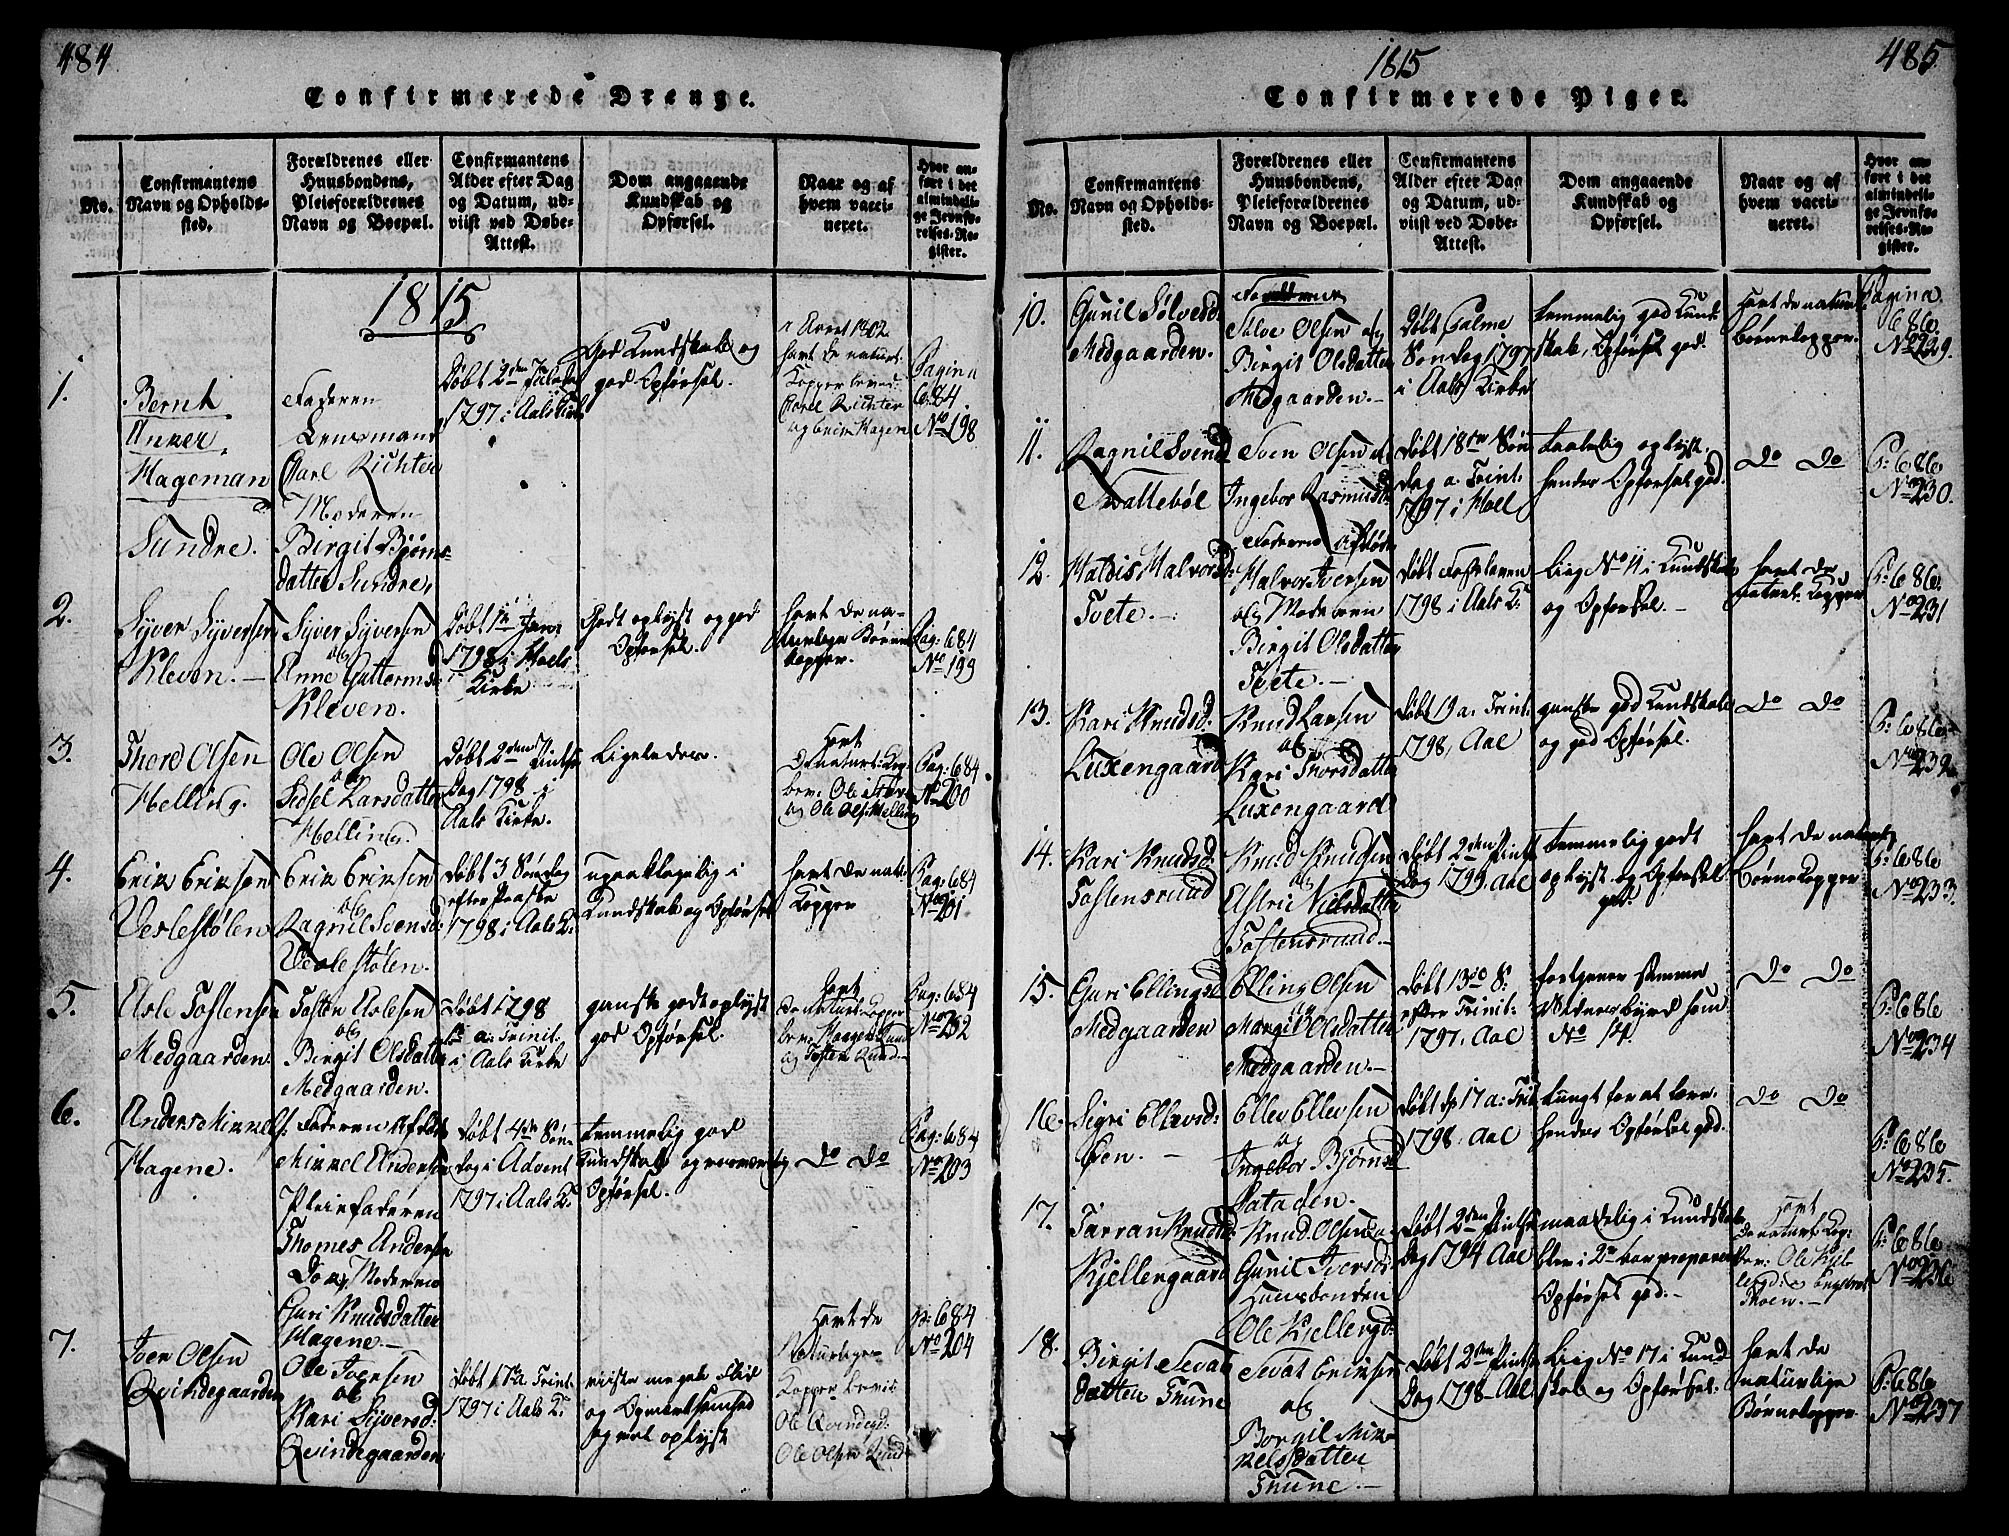 484
Confirmerede Drenge.
No.
Confirmantens
Navn og Opholds-
sted.
Forældrenes eller
Huusbondens,
Pleieforældrenes
Navn og Boepæl.
Confirmantens
Alder efter Dag
og Datum, ud-
viist ved Døbe-
Attest.
Dom angaaende
Kundskab og
Opførsel.
Naar og af
hvem vacci-
neret.
Hvor an-
ført i det
almindeli-
ge Jevnfø-
relses-Re-
gister.
1815
1.
Bernt
Anker
Hageman
Sundre.
Faderen
Lensmand
Carl Richter
Moderen
Birgit Bjørns-
datter Sundre,
Døbt 2den
1797 i Aals
God Kundskab og
god Opførsel.
Aaret 1802
havt de naturl.
Kopper
Carl Richter
og Hagen
Pagina
684.
No 198
2.
Syver Syversen
Kleven.
Syver Syversen
og
Anne Guttormsd
Kleven.
Døbt 1te Jan:
1798 i Hoels
Kirke
Godt oplyst og god
Opførsel.
havt de na-
turlige Børne
kopper.
Pag: 684
No 199
3.
Thord Olsen
Helling.
Ole Olsen
og
Sidsel Larsdatter
Helling.
Døbt 2den Pintse
Dag 1798 i
Aals Kirke.
Ligeledes.
havt
de naturl: Kop
bev: Ole
og Ole Ols: Helling
Pag: 684
No 200
4.
Erik Eriksen
Veslestølen
Erik Eriksen
og
Ragnil Svensd:
Veslestølen.
Døbt 3 Søndag
efter Paaske
1798 i Aals K:
upaaklagelig i
Kundskab og Opførsel
havt de nat:
Kopper
Pag: 684
No 201
5.
Asle Tostensen
Medgaarden.
Tosten Aslesen
og
Birgit Olsdatter
Medgaarden.
Døbt 1798
a: Trinit.
i Aals Kirke
ganske godt oplyst
god Opførsel.
havt
de naturl: Kopper
bev:
og Tosten Ruud.
Pag: 684
No 202
6.
Anders Mikkels:
Hagene.
Faderen Afdøde
Mikkel Andersen
Pleiefaderen
Thomes Andersen
Do og Moderen
Guri Knudsdatter
Hagene.
Døbt 4de Søn-
dag i Advent
1797 i Aals K:
temmelig god
Kundskab og
Opførsel.
Do Do
Pag: 684
No 203
7.
Iver Olsen
Qvindegaarden
Ole Iversen
og
Kari Syversd:
Qvindegaarden
Døbt 17 a Trint:
1797 i Aals K:
viiste megen Flid
og Opmærksomhed
og vel oplyst
Havt de
Naturlige
Kopper beviis
Ole Qvindegd:
Ole Olsen Ruud
P: 684
No 204
1815
485
Confirmerede Piger.
No.
Confirmantens
Navn og Opholds-
sted.
Forældrenes eller
Huusbondens,
Pleieforældrenes
Navn og Boepæl.
Confirmantens
Alder efter Dag
og Datum, ud-
viist ved Døbe-
Attest.
Dom angaaende
Kundskab og
Opførsel.
Naar og af
hvem vacci-
neret.
Hvor an-
ført i det
almindeli-
ge Jevnfø-
relses-Re-
gister.
10.
Gunil Sølvesd:
Medgaarden.
Sølve Olsen og
Birgit Olsdatter
Medgaarden.
Døbt Palme
Søndag 1797
i Aals Kirke
temmelig god Kund-
skab, Opførsel god.
havt de naturl.
Børnekopper.
Pagina
686.
No 229.
11.
Ragnil Svensd
Svallebøl
Sven Olsen og
Ingebor Rasmusd
Døbt 18de Søn
dag a. Trint:
1797 i Hoel
taalelig oplyst,
hendes Opførsel god.
Do Do
P: 686
No 230.
12.
Haldis Halvorsd:
Tvete.
Faderen Afdøde
Halvor Iversen
og Moderen
Birgit Olsdatter
Tvete.
Døbt Fastelaven
1798 i Aals K:
Liig No 11 i Kundskab
og Opførsel.
havt de
naturl. Kopper
P: 686.
No 231
13.
Kari Knudsd.
Luxengaard
Knud Larsen
og
Kari Thorsdatter
Luxengaard
Døbt 19 a: Trint:
1798, Aal
ganske god Kundskab
og god Opførsel.
Do Do
P: 686
No 232
14.
Kari Knudsd:
Tostensruud
Knud Knudsen
og
Astrie Nielsdatter
Tostensruud.
Døbt 2den Pintse
Dag 1799. Aal
temmelig godt
oplyst og Opførsel
god.
havt de naturl
Børnekopper
P: 686
No 233.
15.
Guri Ellingsd
Medgaarden
Elling Olsen
og
Margit Olsdatter
Medgaarden.
Døbt 13de S:
efter Trinit:
1797. Aal
fortjener samme
Vidnesbyrd som
No 14.
Do Do
P: 686
No 234
16.
Sigri Ellevsd:
Øen.
Ellev Ellevsen
og
Ingebor Bjørnsd
Sataden.
Døbt Sp 17 a: Trit
1798. Aal
tungt for at lære.
hendes Opførsel god.
Do Do
P: 686
No 235.
17.
Tarran Knudsd:
Kjellengaard
Knud Olsen og
Gunil Iversd:
Huusbonden
Ole Kjellengd:
Døbt 2den Pintse
Dag 1794 Aal
maadelig i Kundskab
blev i 2de Aar præpareret
Opførsel god.
havt
de naturl: Kop:
bev: Ole Kjel-
lengd: og Engebret
Thoen.
P: 686
No 236
18.
Birgit Sevat
datter Thune
Sevat Eriksen
og
Borgil Mik-
kelsdatter
Thune.
Døbt 2den Pintse
Dag 1798 Aal
Liig No 17 i Kund-
skab og Opførsel.
havt de
naturlige
Børnekopper.
P: 686
No 237